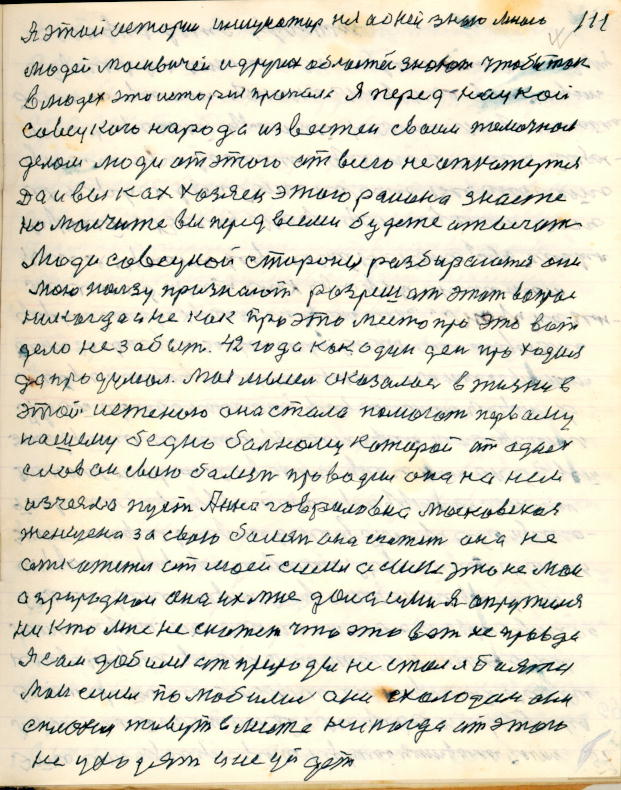 Я этой истории инициатор на ней знаю много 111
людей москвичей и других областей знают чтобы так
в людех это история пропала Я перед наукой
совецкого народа известен своим
делом люди от этого от всего не откажутся
Да и вы ках хозяен этого раиона знаете
но молчите вы перед всеми будете отвечат
Люди совецкой стороны разбираются они
мою ползу признают разрешат этот вопрос
никогда и не как про это место про это вот
дело не забыт. 42 года как один ден проходил
да продумал. Моя мысел оказалас в жизни в
этой истеною она стала помогат первому
нашему бедно болному которой от одных
слов свою болезн проводил она на нем
изчезла пуст Анна говриловна Московская
женщена за свою болезн она скажет она не
откажется от моей силы а сила это не моя
а природном она их мне дола ими Я окружился
Ни кто мне не скажет что это вот не правда
Я сам добился от природы не стал я боятся
Мои силы полюбили они с холодом они
сплош живут в месте никогда от этого
не уходят и не уйдет